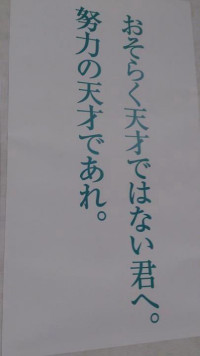 おそらく天才ではない君へ。
努力の天才であれ。